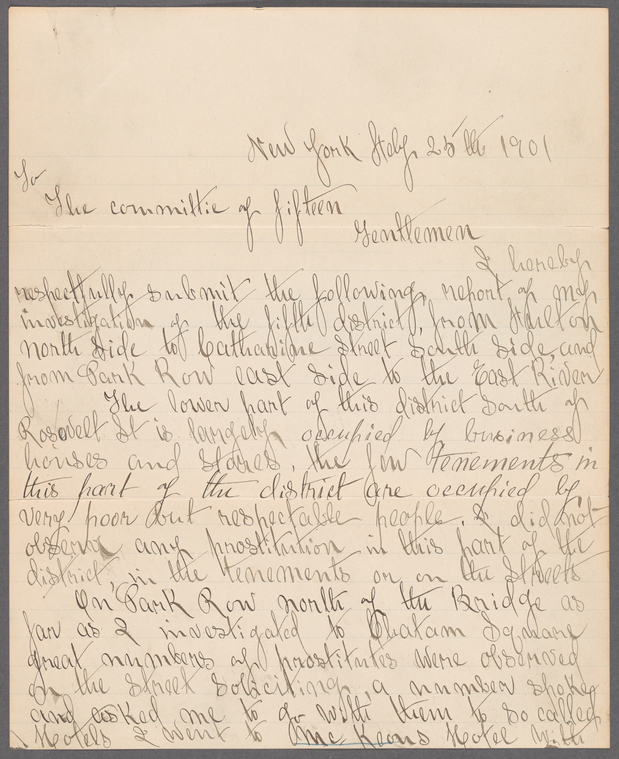 New York Feby 25th 1901
To
The committie of fifteen
Gentlemen
I hereby
respectfully submit the following report of my
investigation of the fifth district, from Fulton
north side to Catharine street south side, and
from Park Row east side to the East River
The lower part of this district south of
Rosevelt St is largely occupied by business
houses and stores, the few tenements in
this part of the district are occupied by
very poor but respectable people. I did not
observe any prostitution in this part of the
district, in the tenements or on the streets
On Park Row north of the Bridge as
far as I investigated to Chatam Square
great numbers of prostitutes were observed
on the street soliciting, a number spoke
and asked me to go with them to so called
Hotels I went to Mc Keons Hotel with